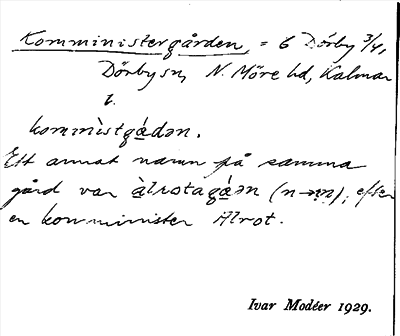 Komministergården, = 6 Dörby 3/4,
Dörby sn, N. Möre hd, Kalmar
l.
kommìstgǻdən.
Ett annat namn på samma
gård var àlrotagǻən (n→n̥); efter
en komminister Alrot.
Ivar Modéer 1929.